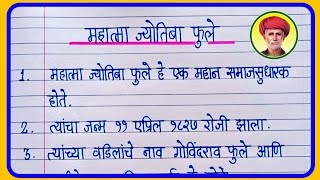 महात्मा ज्योतिबा फुले
1. महात्मा ज्योतिबा फुले हे एक महान समाजसुधारक
होते.
2. त्यांचा जन्म ११ एप्रिल १८२७ रोजी झाला.
3. त्यांच्या वडिलांचे नाव गोविंदराव फुले आणि